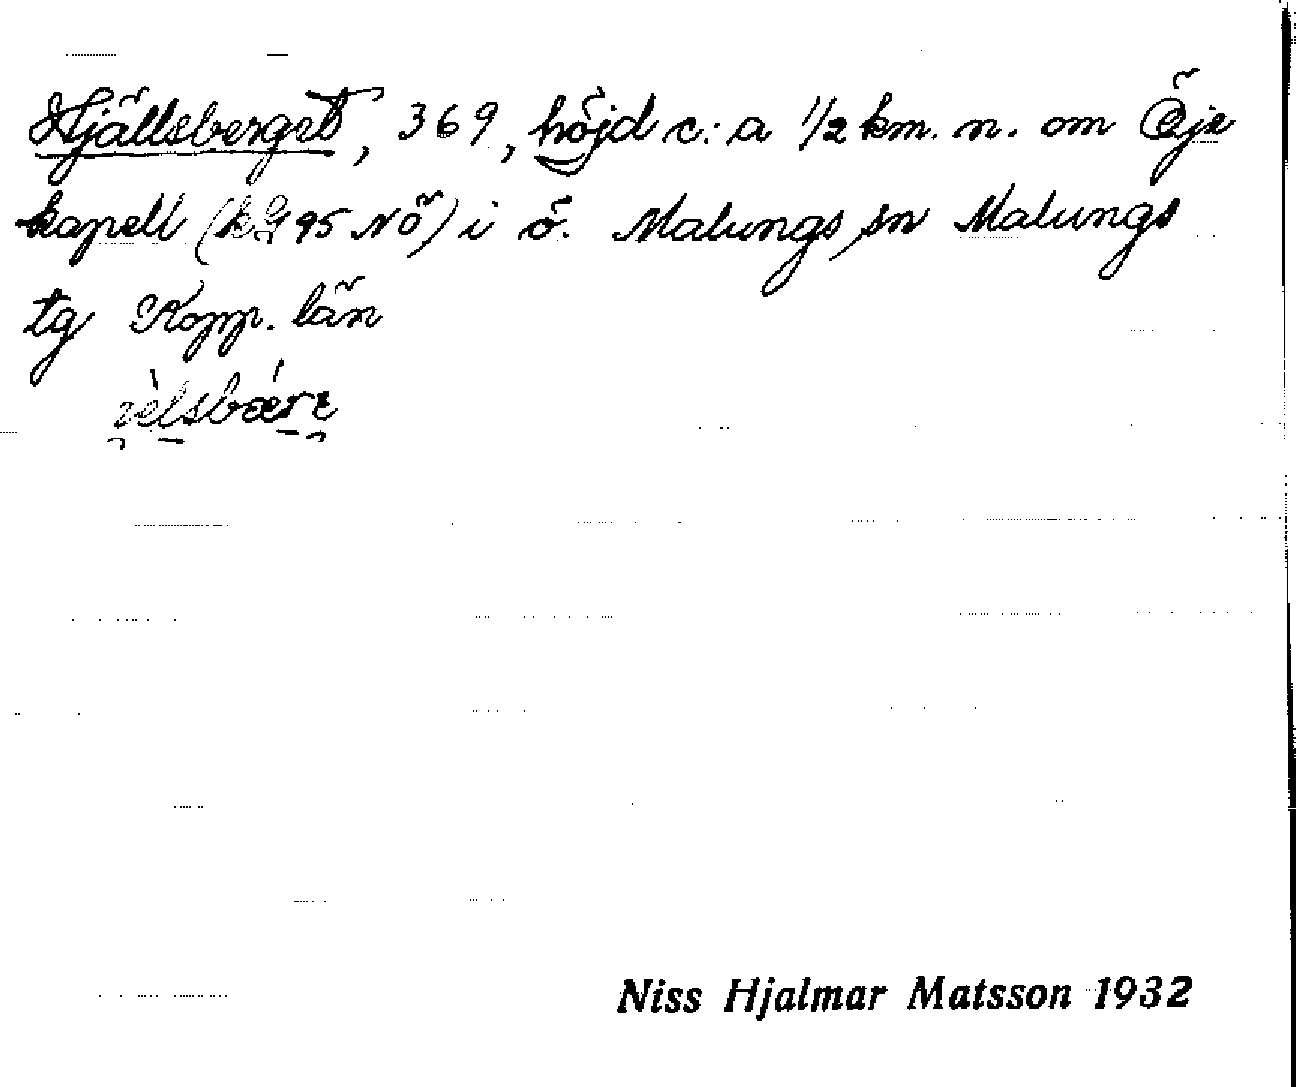 Hjällsberget, 369, höjd c:a 1/2 km. n. om Öje
kapell (kG 95 NÖ) i ö. Malungs sn Malungs
tg Kopp. län
Niss Hjalmar Matsson 1932